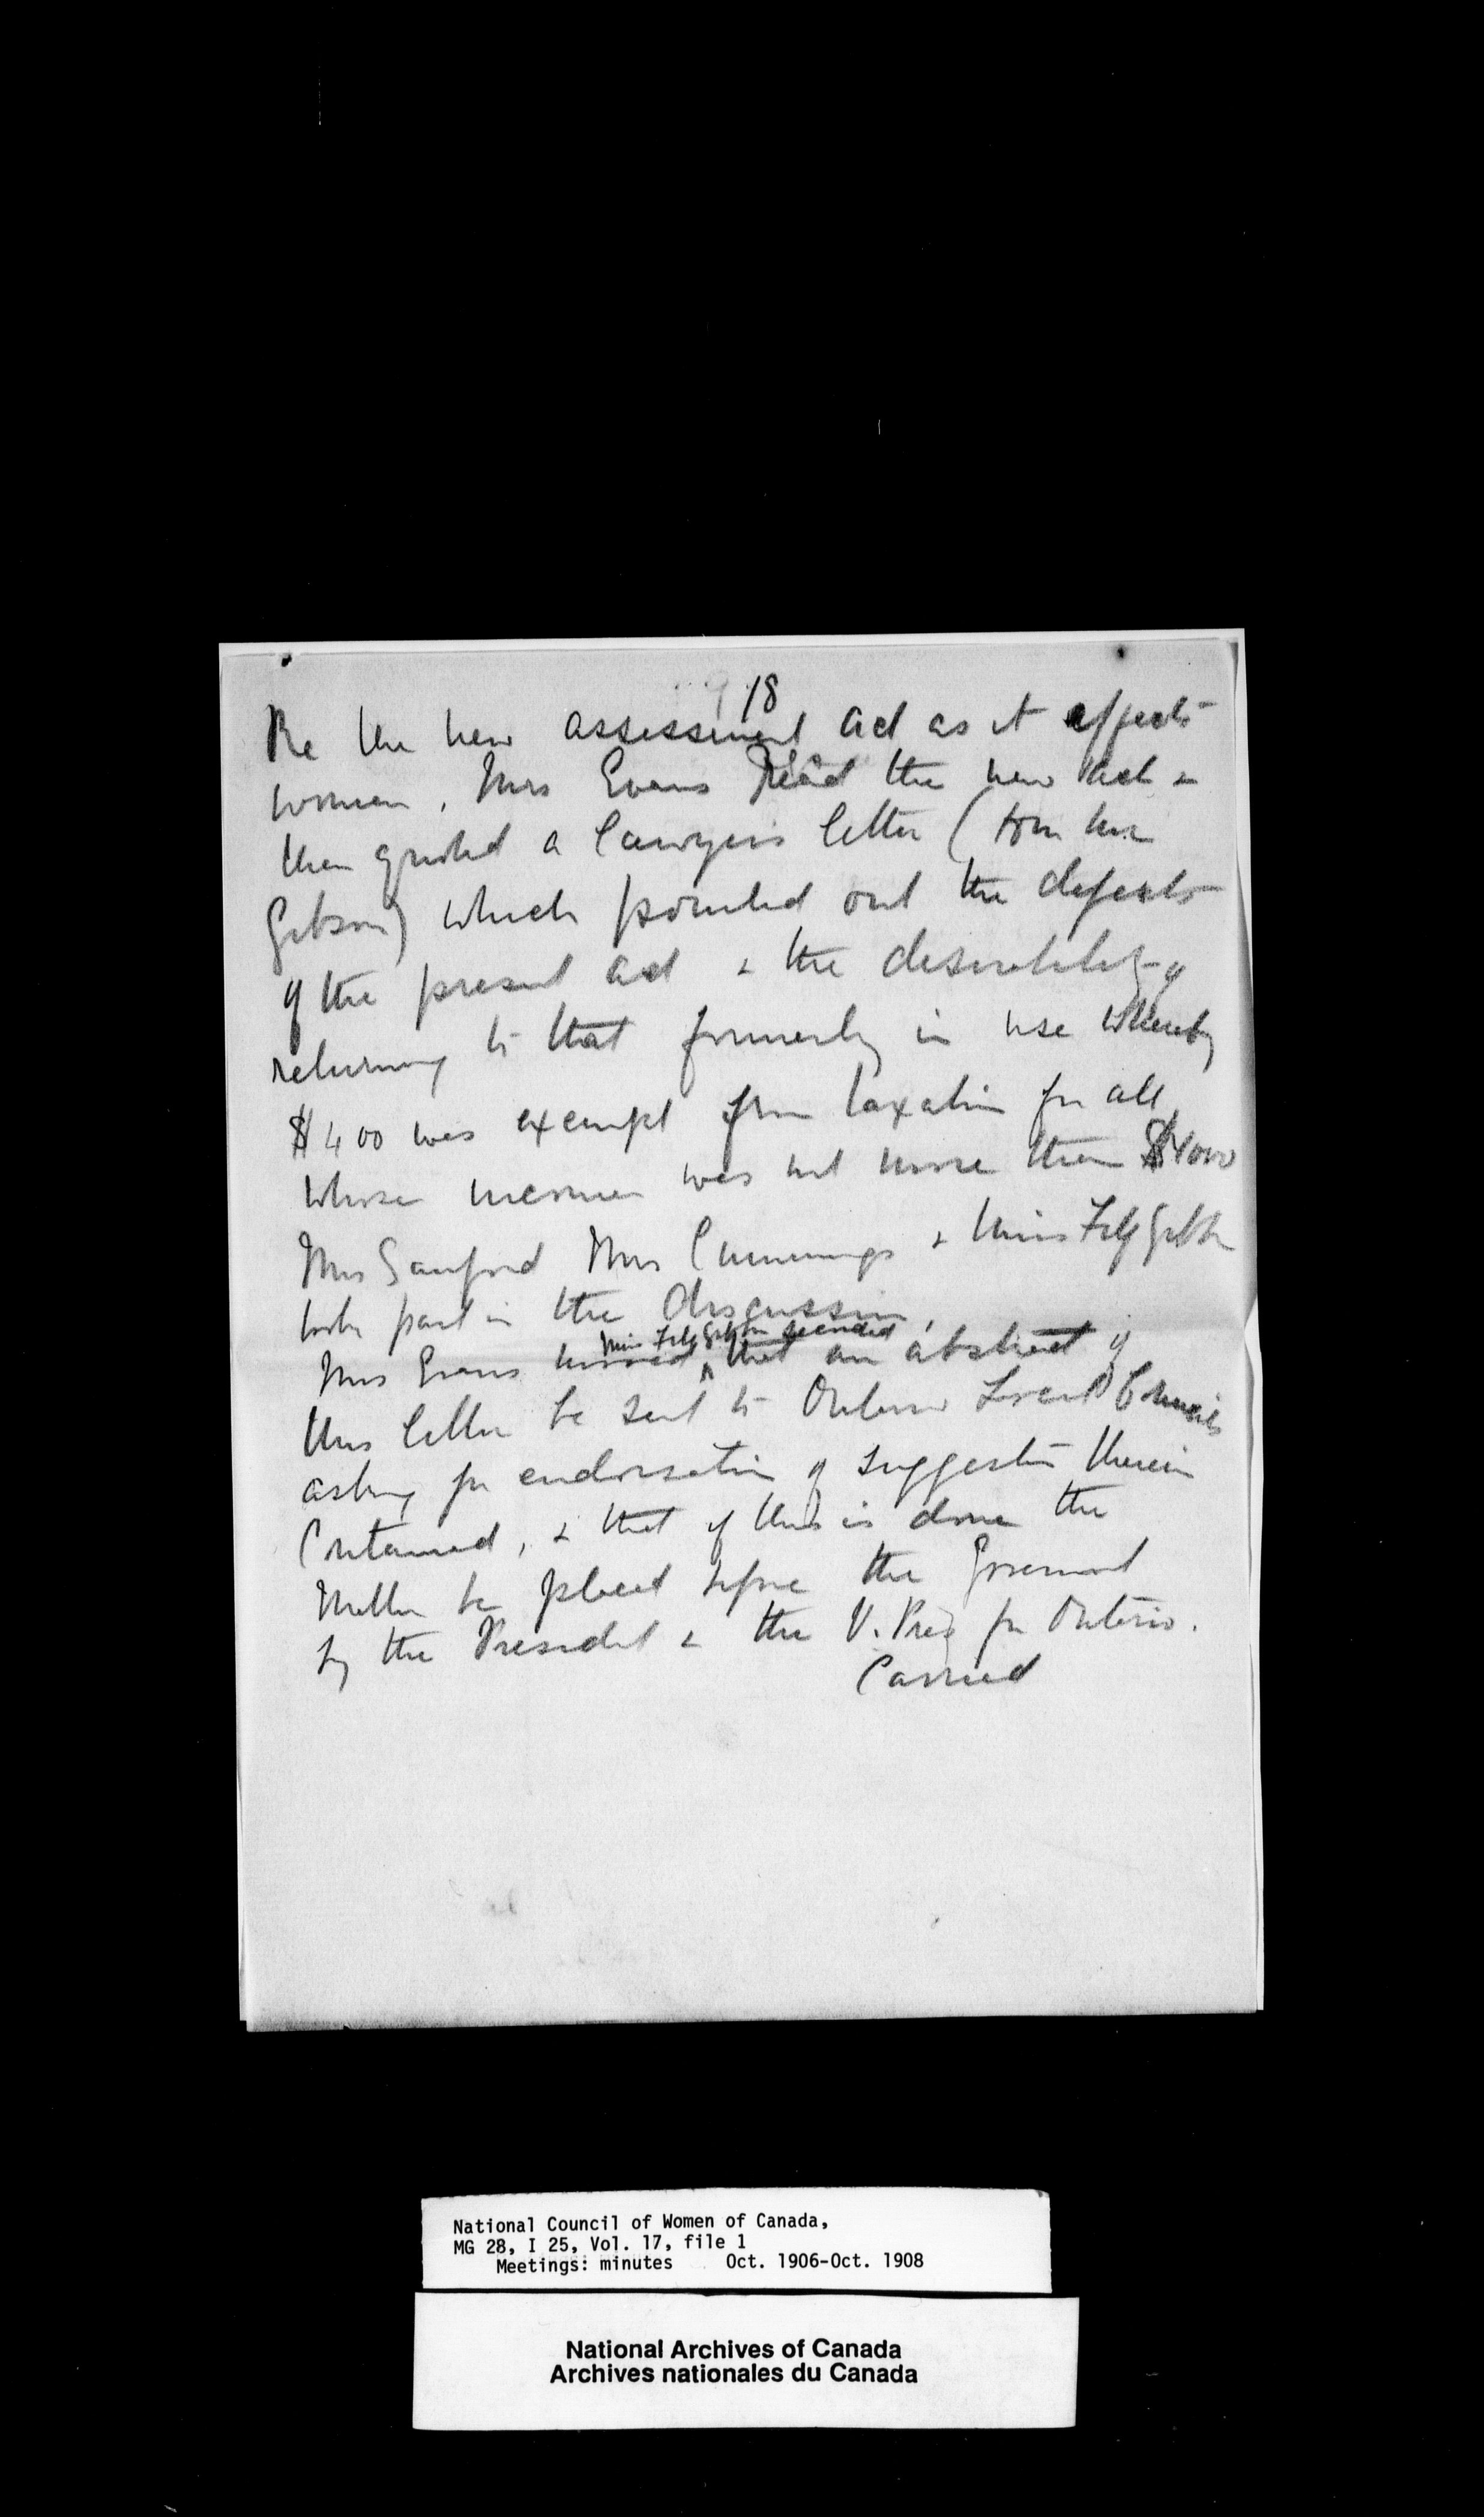 18
Re the new assessment act as it affects
women, Mrs Evans Read the new act &
then quoted a lawyers letter (from
Gibson) which pointed out the defects
of the present act & the desirability of
returning to that formerly in use whereby
$400 was exempt from taxation for all
whose income was not more than $1000
Mrs Sanford Mrs Cummings & Miss FitzGibbon
took part in the discussion.
Miss FitzGibbon seconded
Mrs Evans moved ^ that an abstract of
this letter be sent to Ontario Local Councils
asking for endorsation of suggestion therein
Contained, & that if this is done the
Matter be placed before the Government
by the President & the V. Pres for Ontario.
Carried
National Council of Women of Canada,
MG 28, I 25, Vol. 17, file 1
Meetings: minutes Oct. 1906-Oct. 1908
National Archives of Canada
Archives nationales du Canada